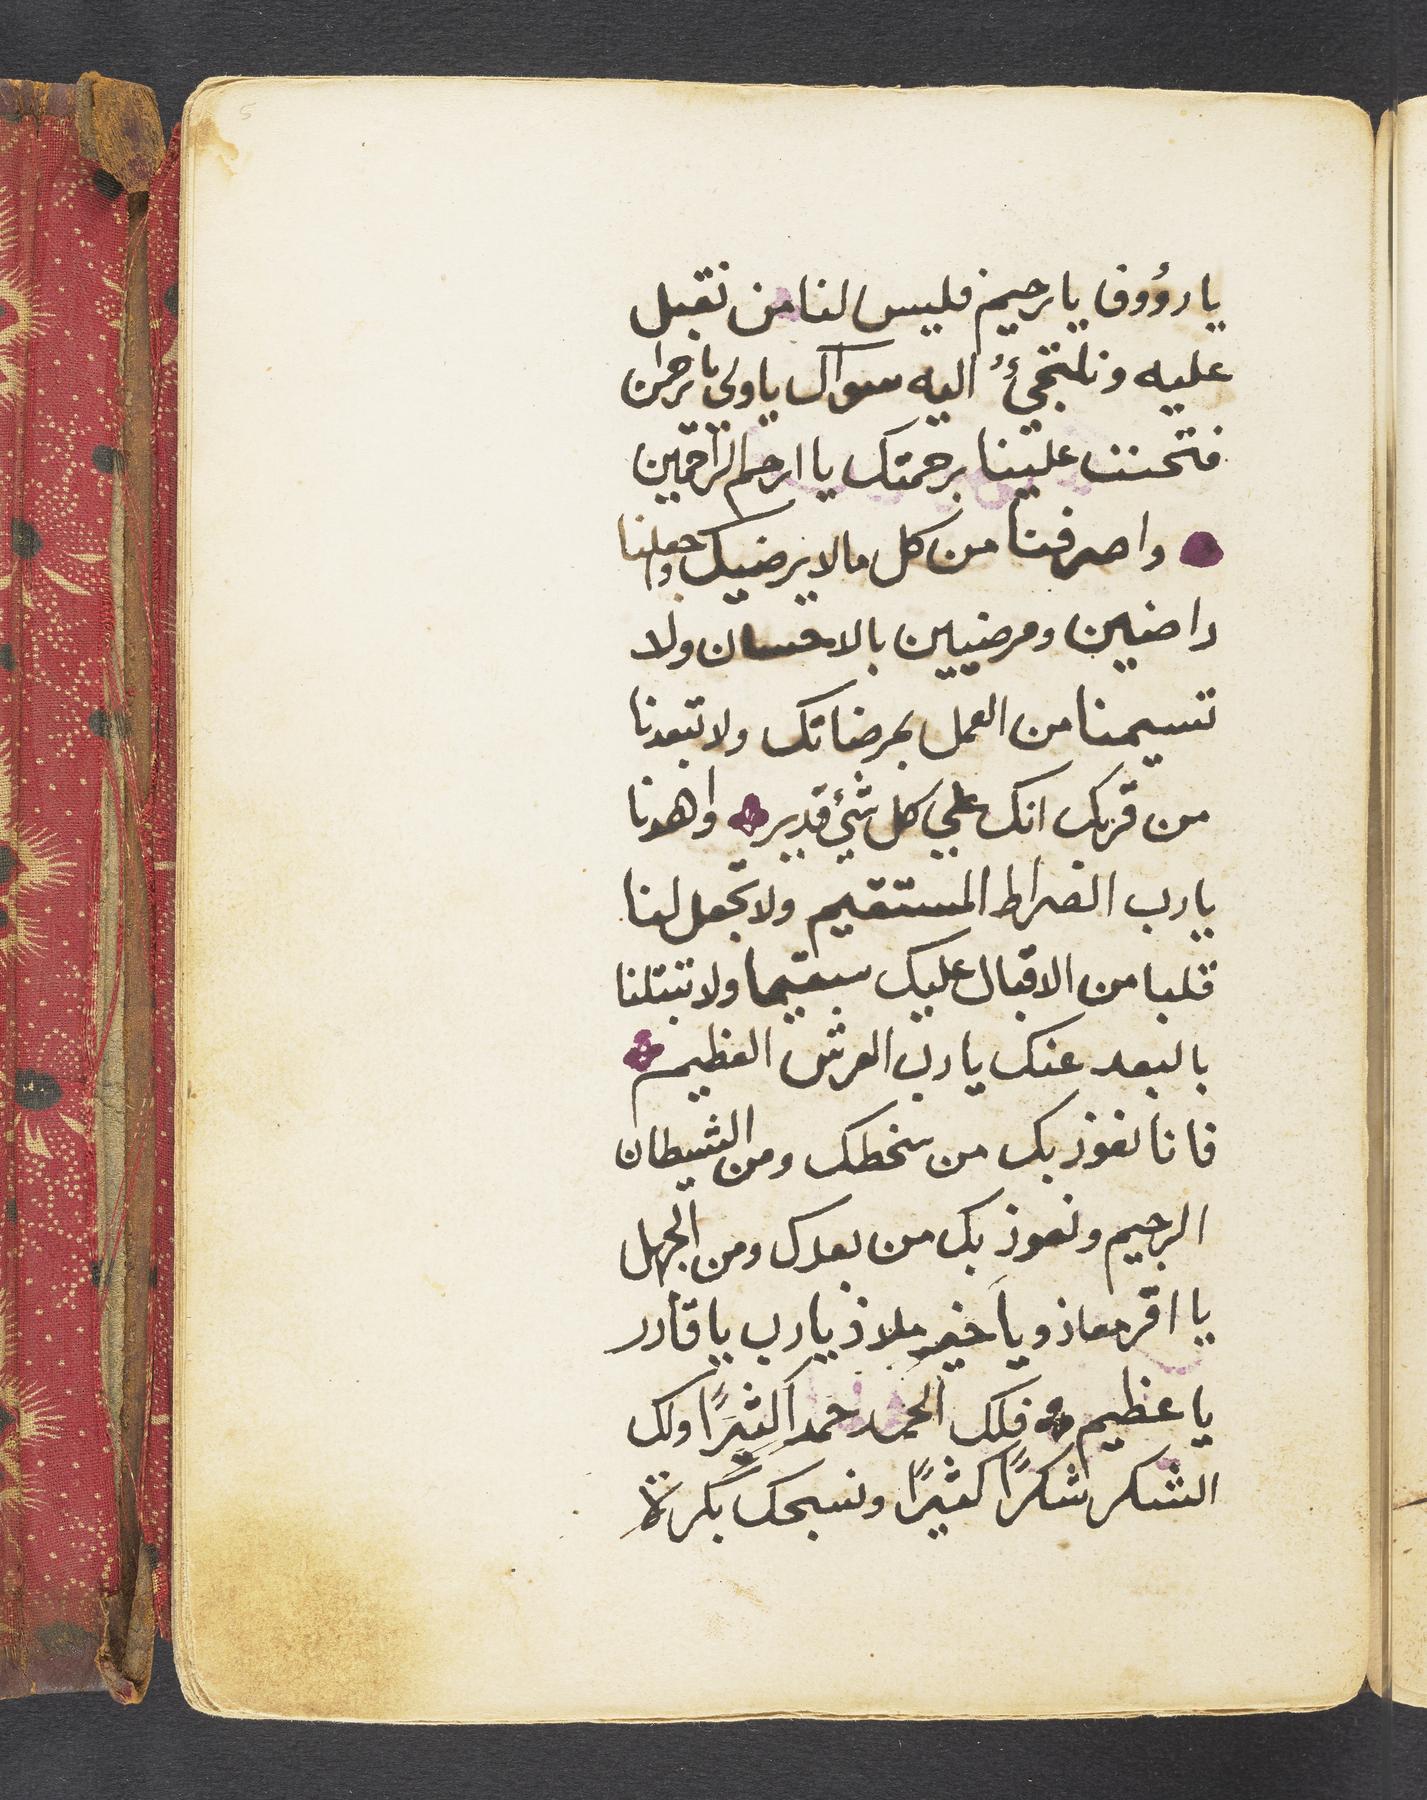 5
يا رؤوف يا رحيم فليس لنا من نقبل
عليه ونلتجئ اليه سواك يا ولي يا رحمن
فتحنن علينا برحمتك يا ارحم الراحمين
واصرفنا من كل ما لا يرضيك واجعلنا
راضيين ومرضيين بالاحسان ولا
تسيمنا من العمل بمرضاتك ولا تبعدنا
من قربك انك علي كل شئ قدير واهدنا
يا رب الصراط المستقيم ولا تجعل لنا
قلبا من الاقبال عليك سقيما ولا تبتلنا
بالبعد عنك يا رب العرش العظيم
فانا نعوذ بك من سخطك ومن الشيطان
الرجيم ونعوذ بك من بعدك ومن الجهل
يا اقر معاذ ويا خير ملاذ يا رب يا قادر
يا عظيم فلك الحمد حمدا كثيرًا ولك
الشكر شكرًا كثيرًا ونسبحك بكرة